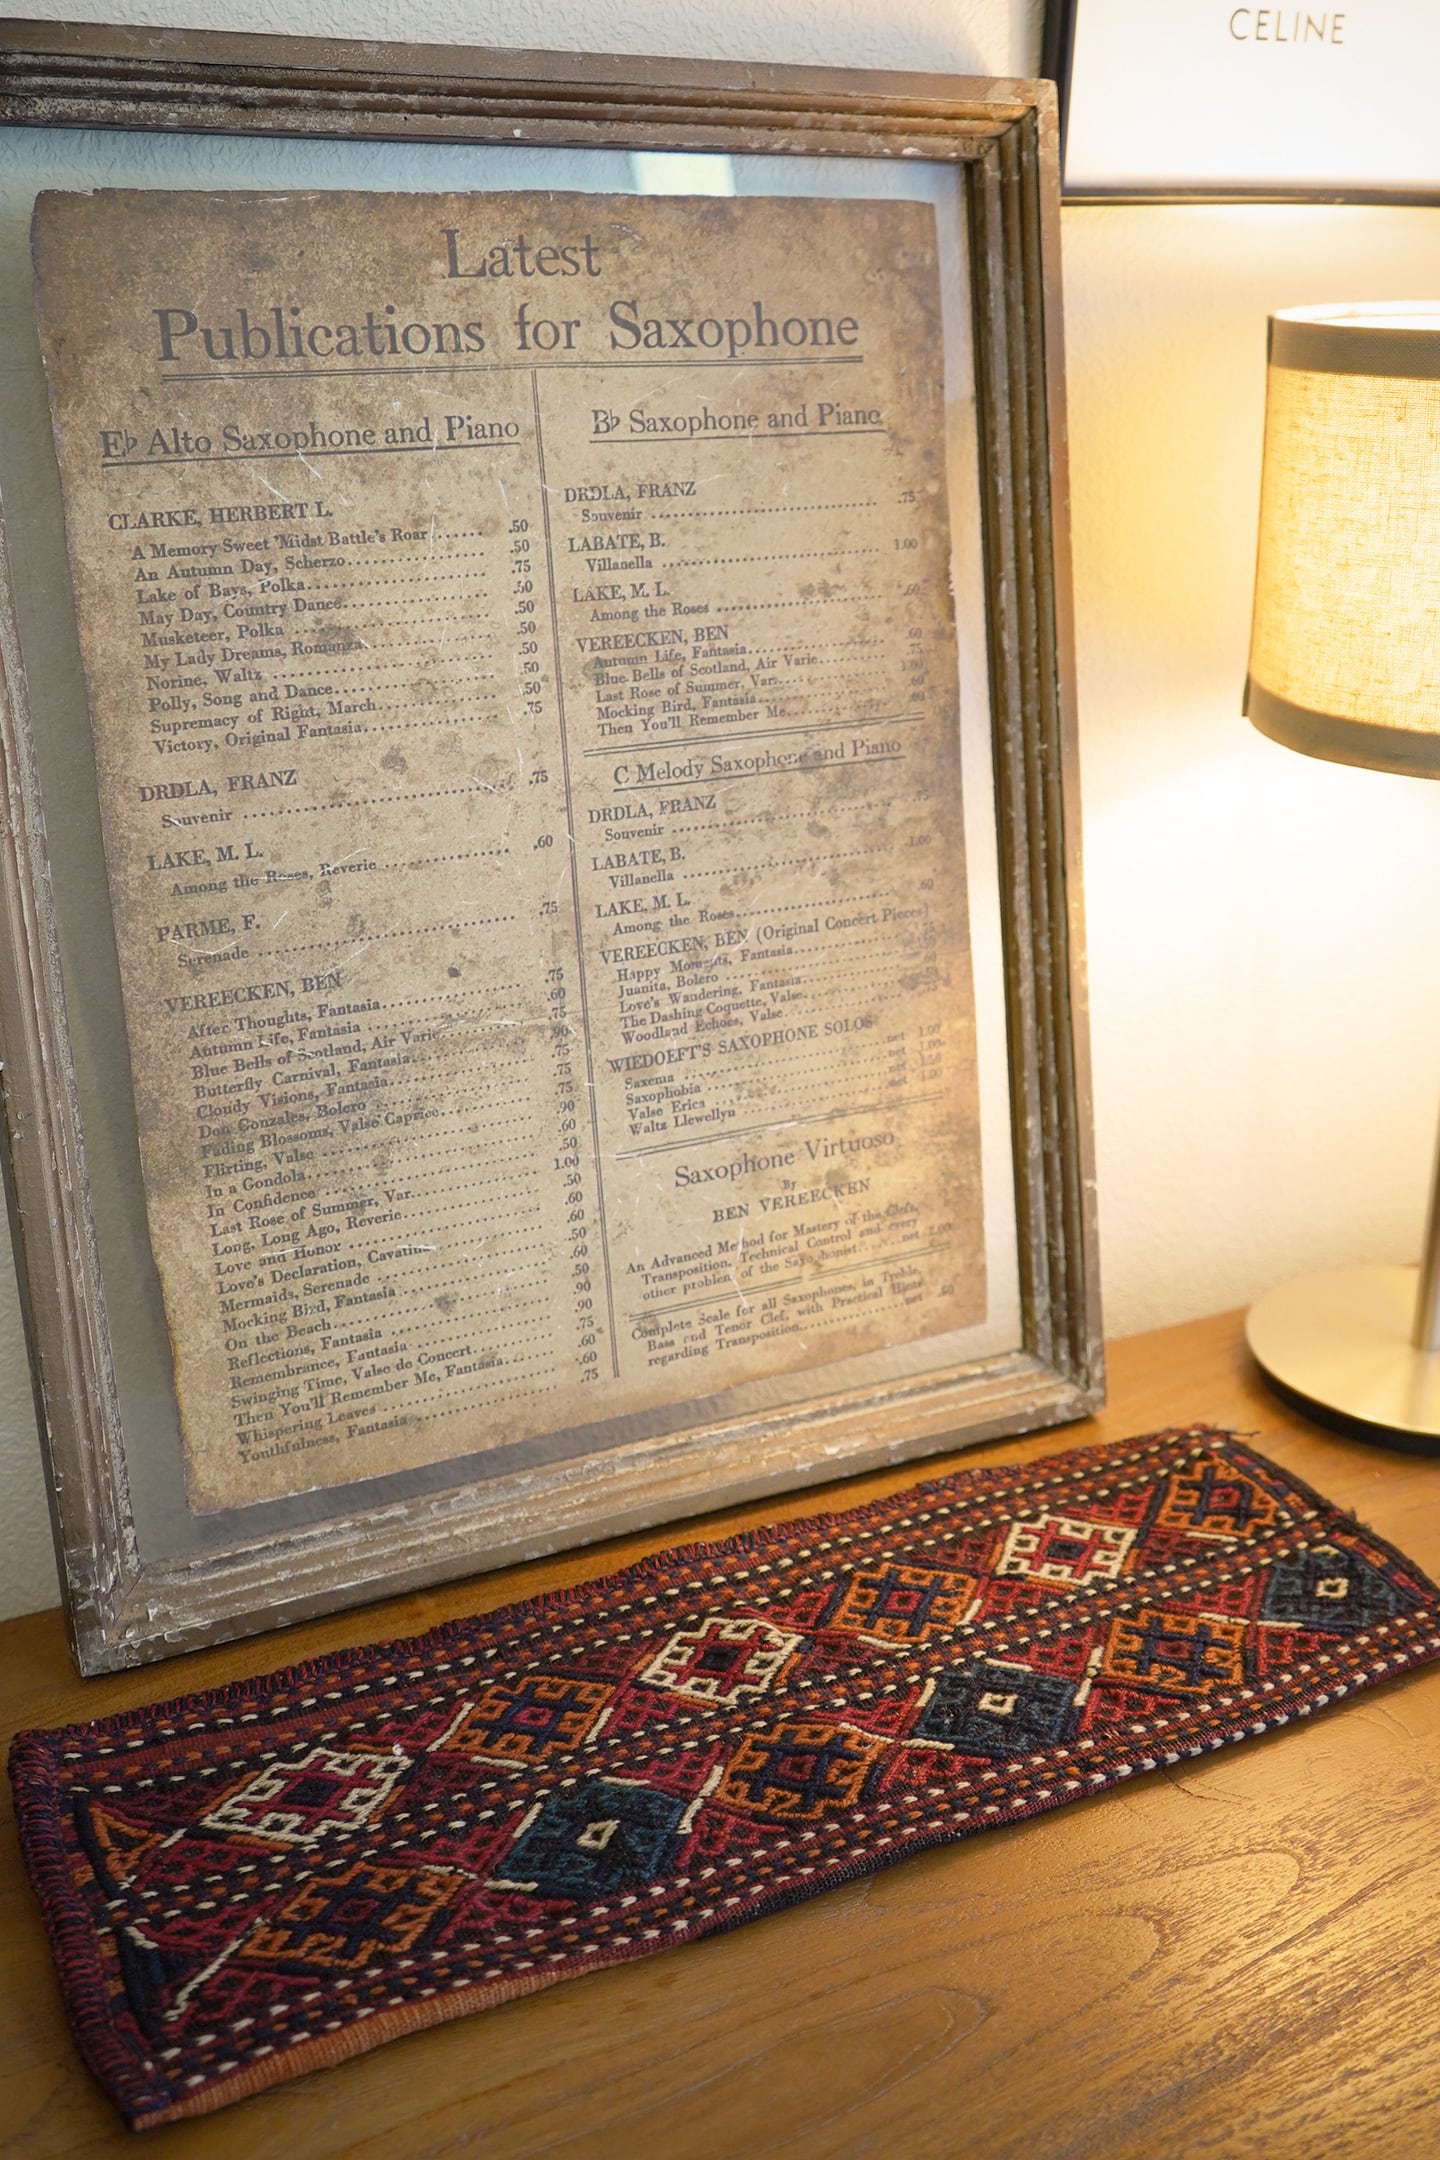 CELINE
Latest
Publications for Saxophone
E♭ Alto Saxophone and Piano
CLARKE, HERBERT L.
A Memory Sweet 'Midst Battle's Roar ...... .50
An Autumn Day, Scherzo .50
Lake of Bays, Polka .75
May Day, Country Dance .50
Musketeer, Polka .50
My Lady Dreams, Romanza .50
Norine, Waltz .50
Polly, Song and Dance .50
Supremacy of Right, March .50
Victory, Original Fantasia .75
DRDLA, FRANZ
Souvenir .75
LAKE, M. L.
Among the Roses, Reverie .60
PARME, F.
Serenade .75
VEREECKEN, BEN
After Thoughts, Fantasia .75
Autumn Life, Fantasia .60
Blue Bells of Scotland, Air Varie .75
Butterfly Carnival, Fantasia .90
Cloudy Visions, Fantasia .75
Don Gonzales, Bolero .75
Fading Blossoms, Valse Caprice .75
Flirting, Valse .90
In a Gondola .60
In Confidence .50
Last Rose of Summer, Var. 1.00
Long, Long Ago, Reverie .50
Love and Honor .60
Love's Declaration, Cavatina .60
Mermaids, Serenade .50
Mocking Bird, Fantasia .60
On the Beach .50
Reflections, Fantasia .90
Remembrance, Fantasia .90
Swinging Time, Valse de Concert .75
Then You'll Remember Me, Fantasia .60
Whispering Leaves .60
Youthfulness, Fantasia .75
B♭ Saxophone and Piano
DRDLA, FRANZ
Souvenir .75
LABATE, B.
Villanella 1.00
LAKE, M. L.
Among the Roses .60
VEREECKEN, BEN
Autumn Life, Fantasia .60
Blue Bells of Scotland, Air Varie .75
Last Rose of Summer, Var. 1.00
Mocking Bird, Fantasia .60
Then You'll Remember Me .60
C Melody Saxophone and Piano
DRDLA, FRANZ
Souvenir .75
LABATE, B.
Villanella 1.00
LAKE, M. L.
Among the Roses .60
VEREECKEN, BEN (Original Concert Pieces)
Happy Moments, Fantasia
Juanita, Bolero
Love's Wandering, Fantasia
The Dashing Coquette, Valse
Woodland Echoes, Valse
WIEDOEFT'S SAXOPHONE SOLOS
Saxema net 1.00
Saxophobia net 1.00
Valse Erica net
Waltz Llewellyn net 1.00
Saxophone Virtuoso
By
BEN VEREECKEN
An Advanced Method for Mastery of the Clefs,
Transposition, Technical Control and every
other problem of the Saxophonist net
Complete Scale for all Saxophones, in Treble,
Bass and Tenor Clef, with Practical Hints
regarding Transposition net